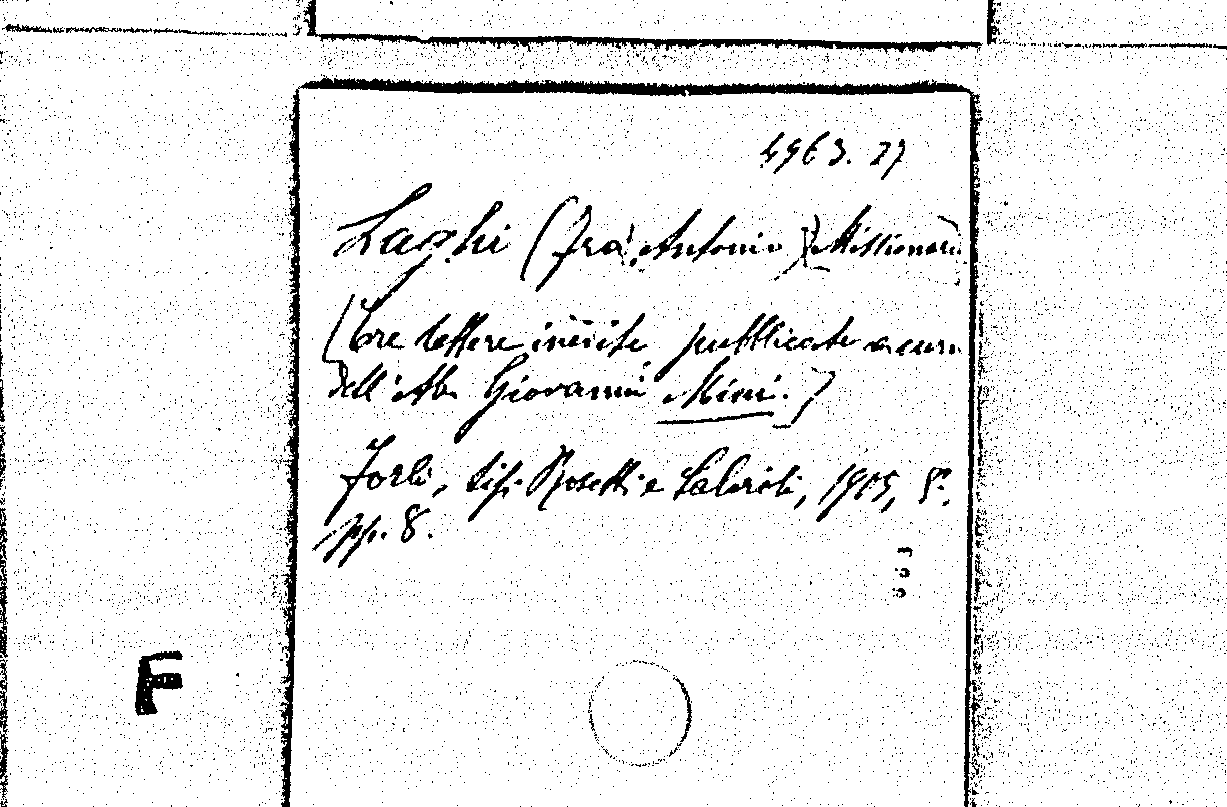 4963.27
Laghi (Fra Antonio) Missionario
[Tre lettere inedite pubblicate a cura
dell'Ab. Giovanni Mini.]
Forlì, tip. Rosetti e Laberoti, 1905, 8º.
pp. 8.
F